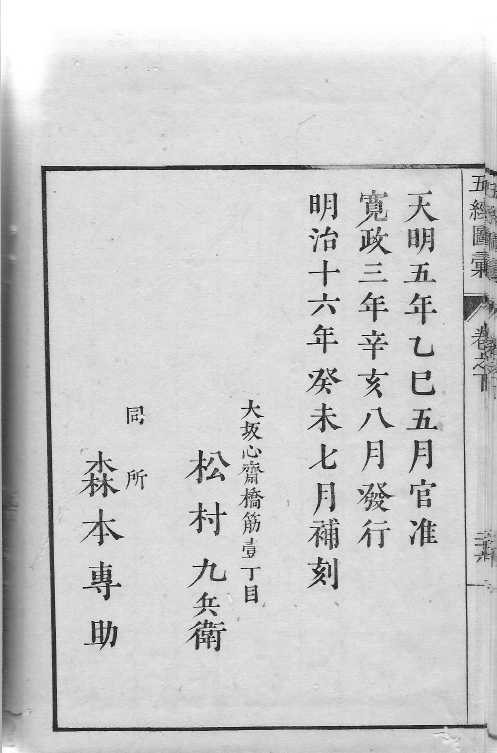 五經圖彙 卷之下
天明五年乙巳五月官准
寛政三年辛亥八月發行
明治十六年癸未七月補刻
大坂心齋橋筋壹丁目
松村九兵衛
同所
森本專助